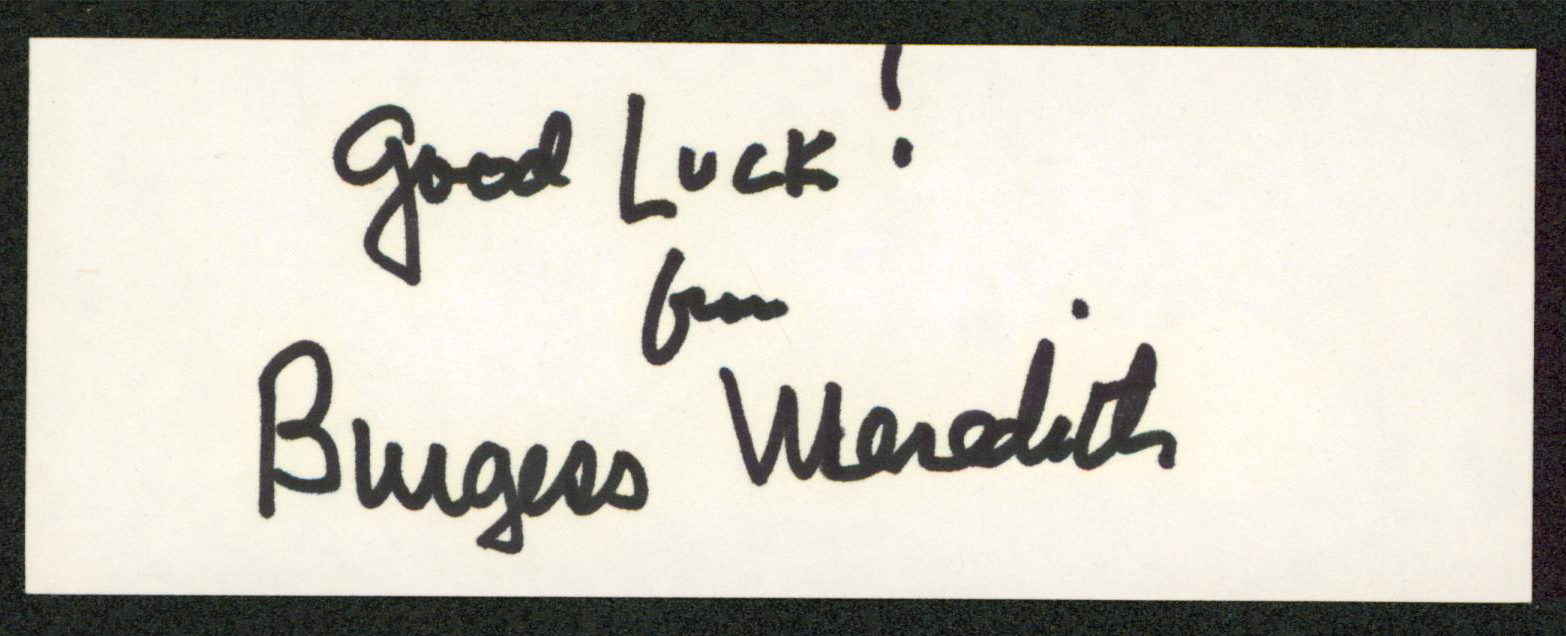 Good Luck!
from
Burgess Meredith